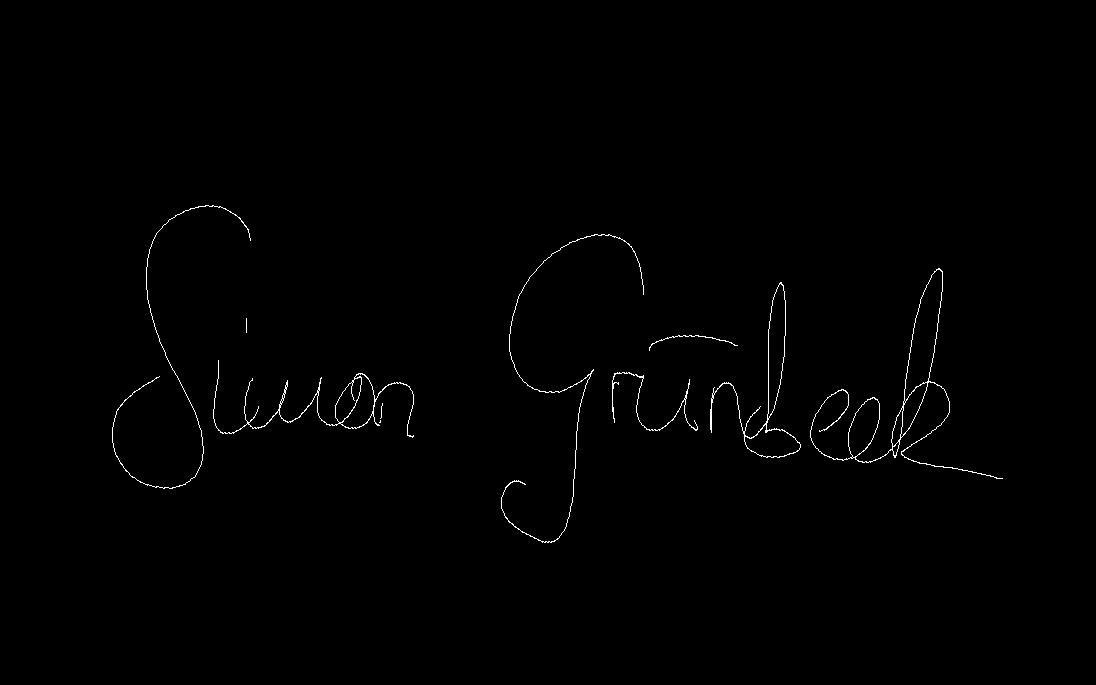 Simon Grünbeek